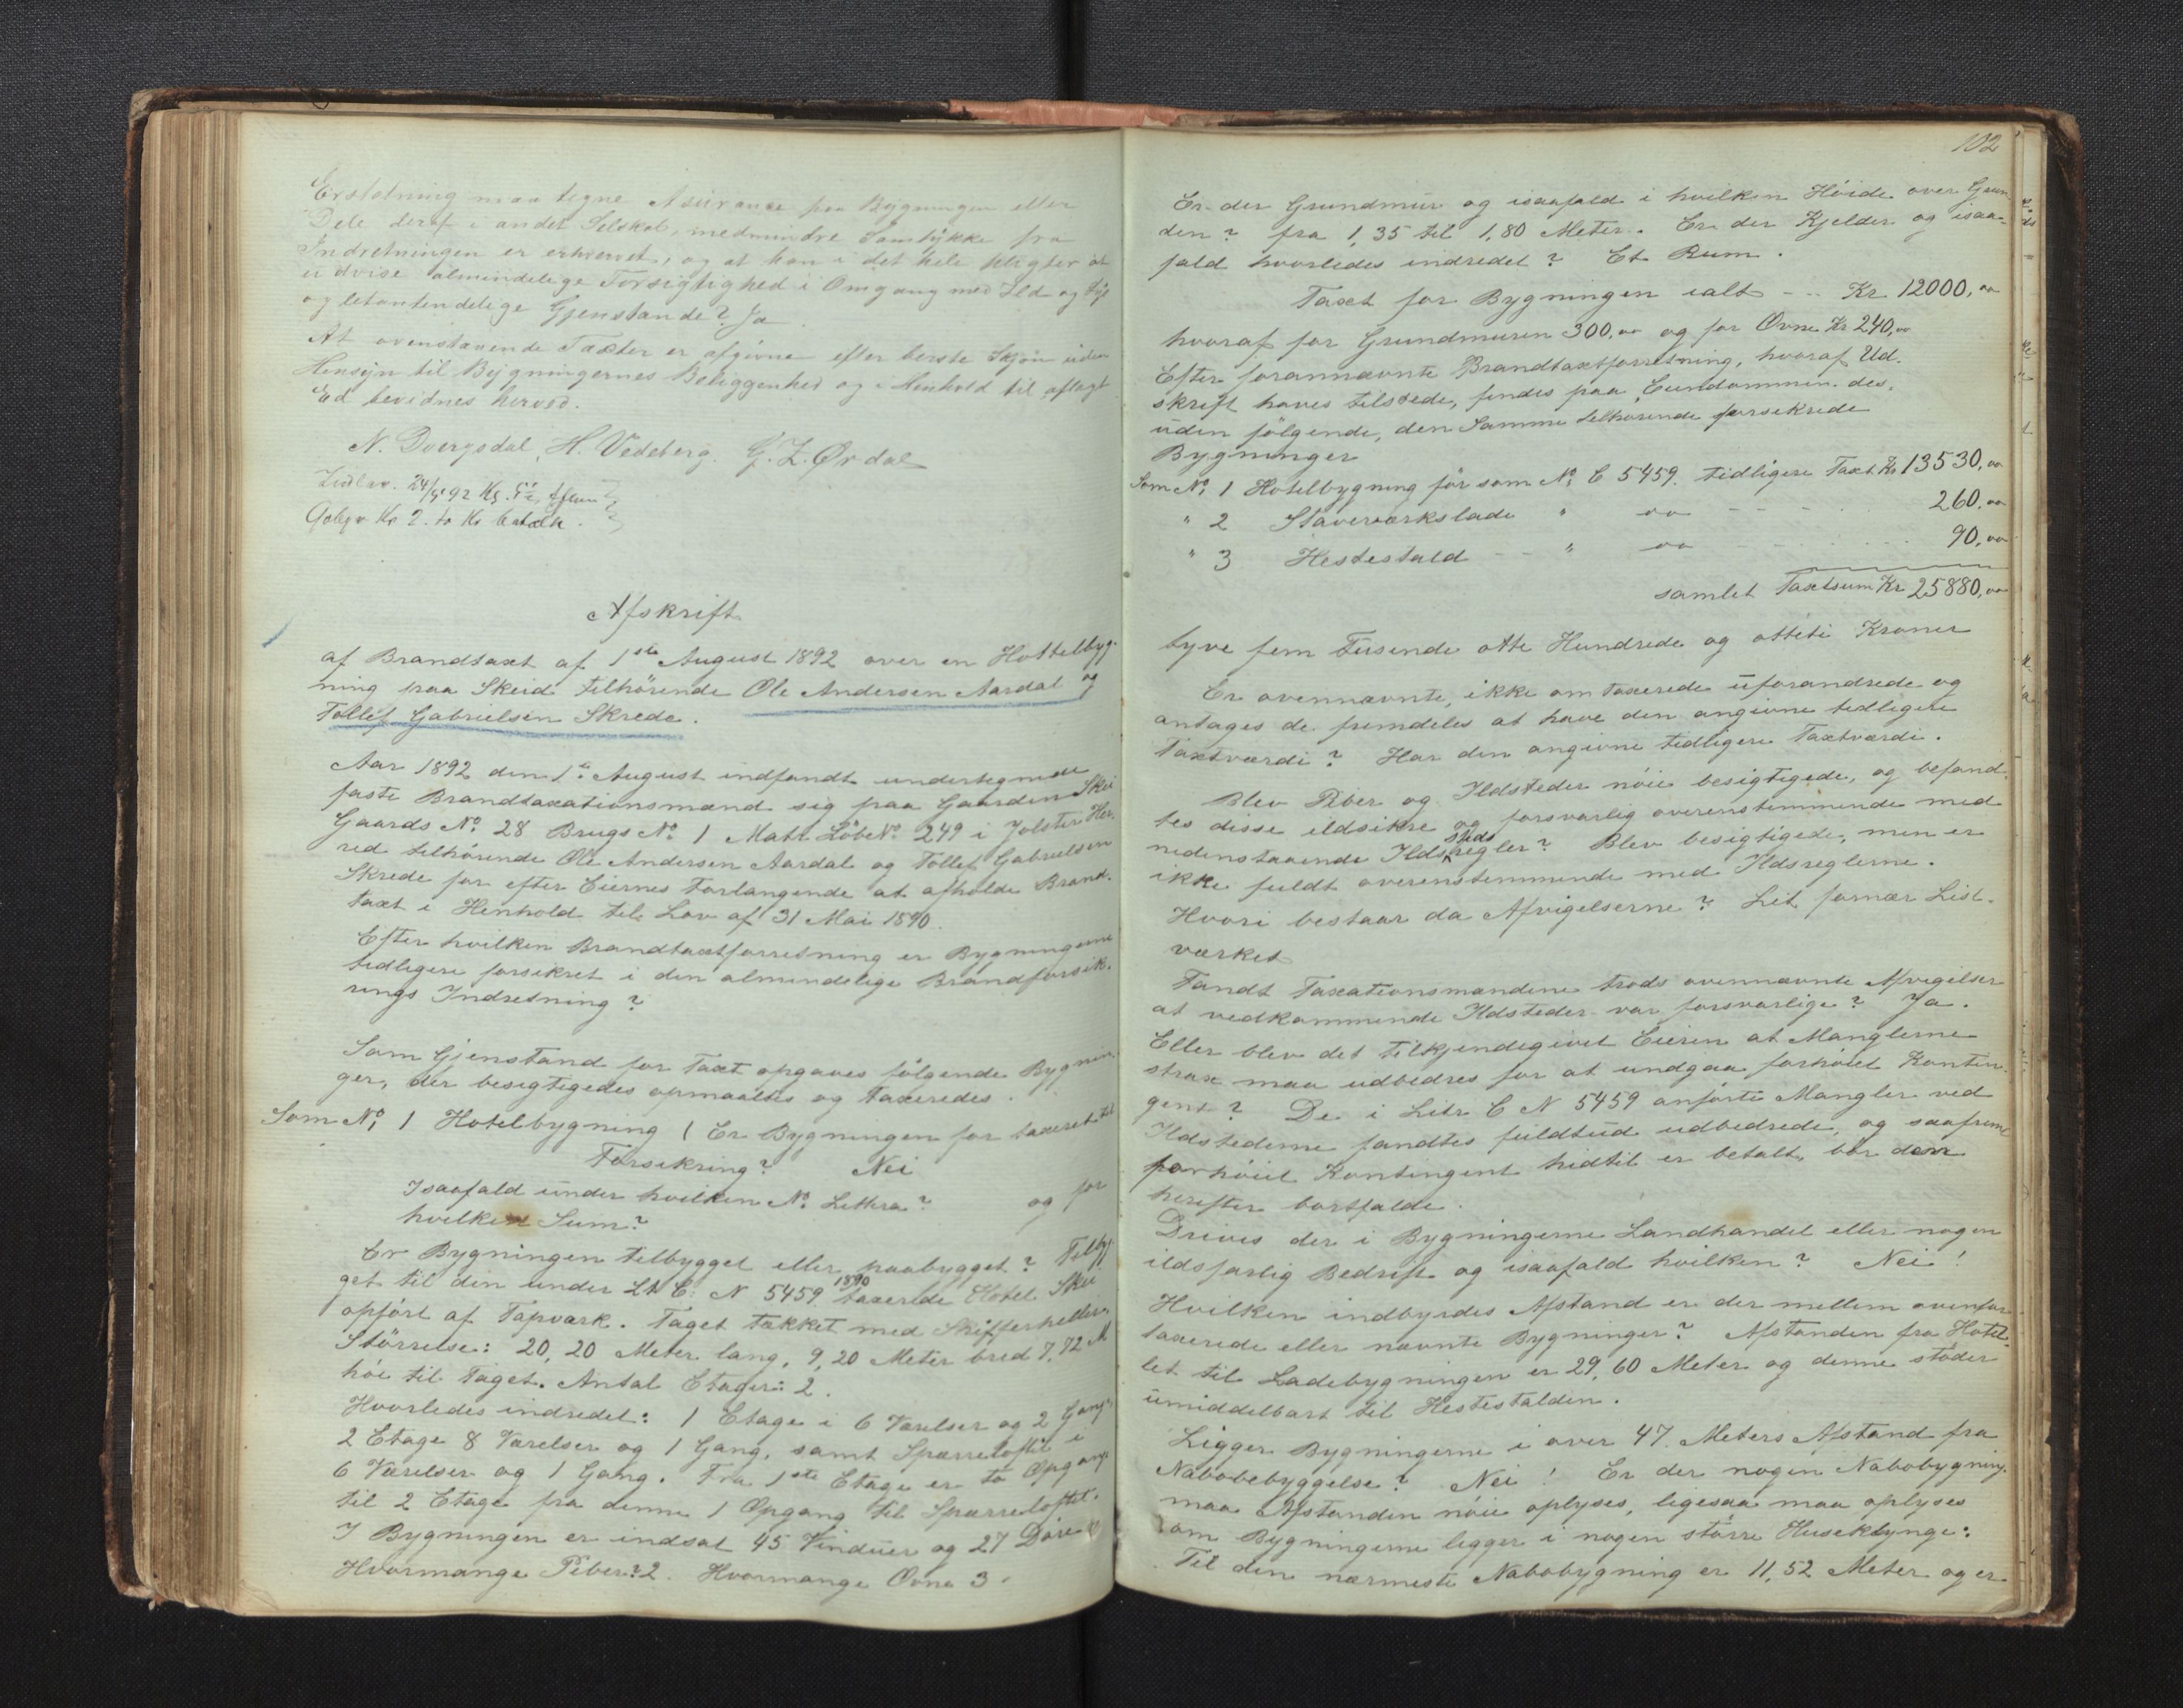 Erstatning maa tegne Assurance paa Bygningen eller
Dele deraf i andet Selskab, medmindre Samtykke fra
Indretningen er erhvervet, og at han i det hele pligter at
udvise almindelige Forsigtighed i Omgang med Ild og Lys
og letantendelige Gjenstande? Ja.
At ovenstaaende Taxter er afgivne efter berste Skjøn uden
Hensyn til Bygningernes Beliggenhed og i Henhold til aflagt
Ed bevidnes herved.
N. Dvergsdal, H. Vedeberg. G. Z. Årdal
24/5 92
Kr 2.
Afskrift
af Brandtaxt af 1ste August 1892 over en Hottelbyg-
ning paa Skeid tilhörende Ole Andersen Aardal og
Tollef Gabrielsen Skrede.
Aar 1892 den 1te August indfandt undertegnede
faste Brandtaxationsmænd sig paa Gaarden Skei
Gaards No 28 Brugs No 1 Matr. Løbe No 249 i Jølster Her-
red tilhörende Ole Andersen Aardal og Tollef Gabrielsen
Skrede for efter Eiernes Forlangende at afholde Brand-
taxt i Henhold til Lov af 31 Mai 1890.
Efter hvilken Brandtaxtforretning er Bygningerne
tidligere forsikret i den almindelige Brandforsik-
rings Indretning?
Som Gjenstand for Taxt opgaves fölgende Bygnin-
ger, der besigtigedes opmaaltes og taxeredes.
Som No, 1 Hotelbygning ( Er Bygningen før taxeret til
Forsikring? Nei
Isaafald under hvilken No. Littera? og for
hvilken Sum?
Er Bygningen tilbygget eller paabygget? Tilbyg-
get til den under Lt C: N 5459 1890 taxerede Hotel Skei
opfört af Tapværk. Taget tækket med Skifferheller.
Störrelse: 20,20 Meter lang, 9,20 Meter bred 7,72 M
höi til Taget. Antal Etager: 2.
Hvorledes indredet: 1 Etage i 6 Værelser og 2 Gange,
2 Etage 8 Værelser og 1 Gang, samt Sparreloftet i
6 Værelser og 1 Gang. Fra 1ste Etage er to Opgange
til 2 Etage fra denne 1 Opgang til Sparreloftet.
I Bygningen er indsat 45 Vinduer og 27 Döre
Hvormange Piber? 2. Hvormange Ovne 3.
102
Er der Grundmur og isaafald i hvilken Höide over Grun-
den? fra 1,35 til 1,80 Meter. Er der Kjelder og isaa-
fald hvorledes indredet? Et Rum.
Taxt for Bygningen ialt -- Kr. 12000,oo
hvoraf for Grundmuren 300,oo og for Ovne Kr 240,oo
Efter forannævnte Brandtaxtforretning, hvoraf Ud-
skrift haves tilstede, findes paa Eiendommen des-
uden fölgende, den Samme tilhörende forsikrede
Bygninger
Som No, 1 Hotelbygning för som No, C 5459. tidligere Taxt Kr 13530,oo
" 2 Staveværkslade " oo - - - 260.oo
" 3 Hestestald - - " oo - - - 90,oo
samlet Taxtsum Kr 25880,oo
tyve fem Tusende otte Hundrede og otteti Kroner
Er ovennævnte, ikke omtaxerede uforandrede og
antages de fremdeles at have den angivne tidligere
Taxtværdi? Har den angivne tidligere Taxtværdi.
Blev Piber og Ildsteder nöie besigtigede, og befand-
tes disse ildsikre og forsvarlig overenstemmende med
nedenstaaende Ildsstedsregler? Blev besigtigede, men er
ikke fuldt overenstemmende med Ildsreglerne.
Hvori bestaar da Afvigelserne? Lit fornær List-
værket
Fandt Taxationsmændene trods ovennævnte Afvigelser
at vedkommende Ildsteder var forsvarlige? Ja.
Eller blev det tilkjendegivet Eieren at Manglerne
strax maa udbedres for at undgaa forhöiet Kontin-
gent? De i Litr C N 5459 anförte Mangler ved
Ildstederne fandtes fuldtud udbedrede, og saafremt
forhöiet Kontingent hidtil er betalt, bör den
herefter bortfalde.
Drives der i Bygningerne Landhandel eller nogen
ildsfarlig Bedrift og isaafald hvilken? Nei!
Hvilken indbyrdes Afstand er der mellem ovenfor
taxerede eller nævnte Bygninger? Afstanden fra Hotel-
let til Ladebygningen er 29,60 Meter og denne stöder
umiddelbart til Hestestalden.
Ligger Bygningerne i over 47 Meters Afstand fra
Nabobebyggelse? Nei! Er der nogen Nabobygning,
maa Afstanden nöie oplyses, ligesaa maa oplyses
om Bygningerne ligger i nogen större Huseklynge:
Til den nærmeste Nabobygning er 11,52 Meter og er